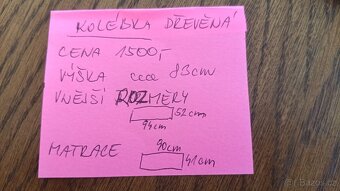 KOLÉBKA DŘEVĚNÁ
CENA 1500,-
VÝŠKA cca 83cm
VNĚJŠÍ ROZMĚRY
52cm
94cm
90cm
MATRACE
41cm